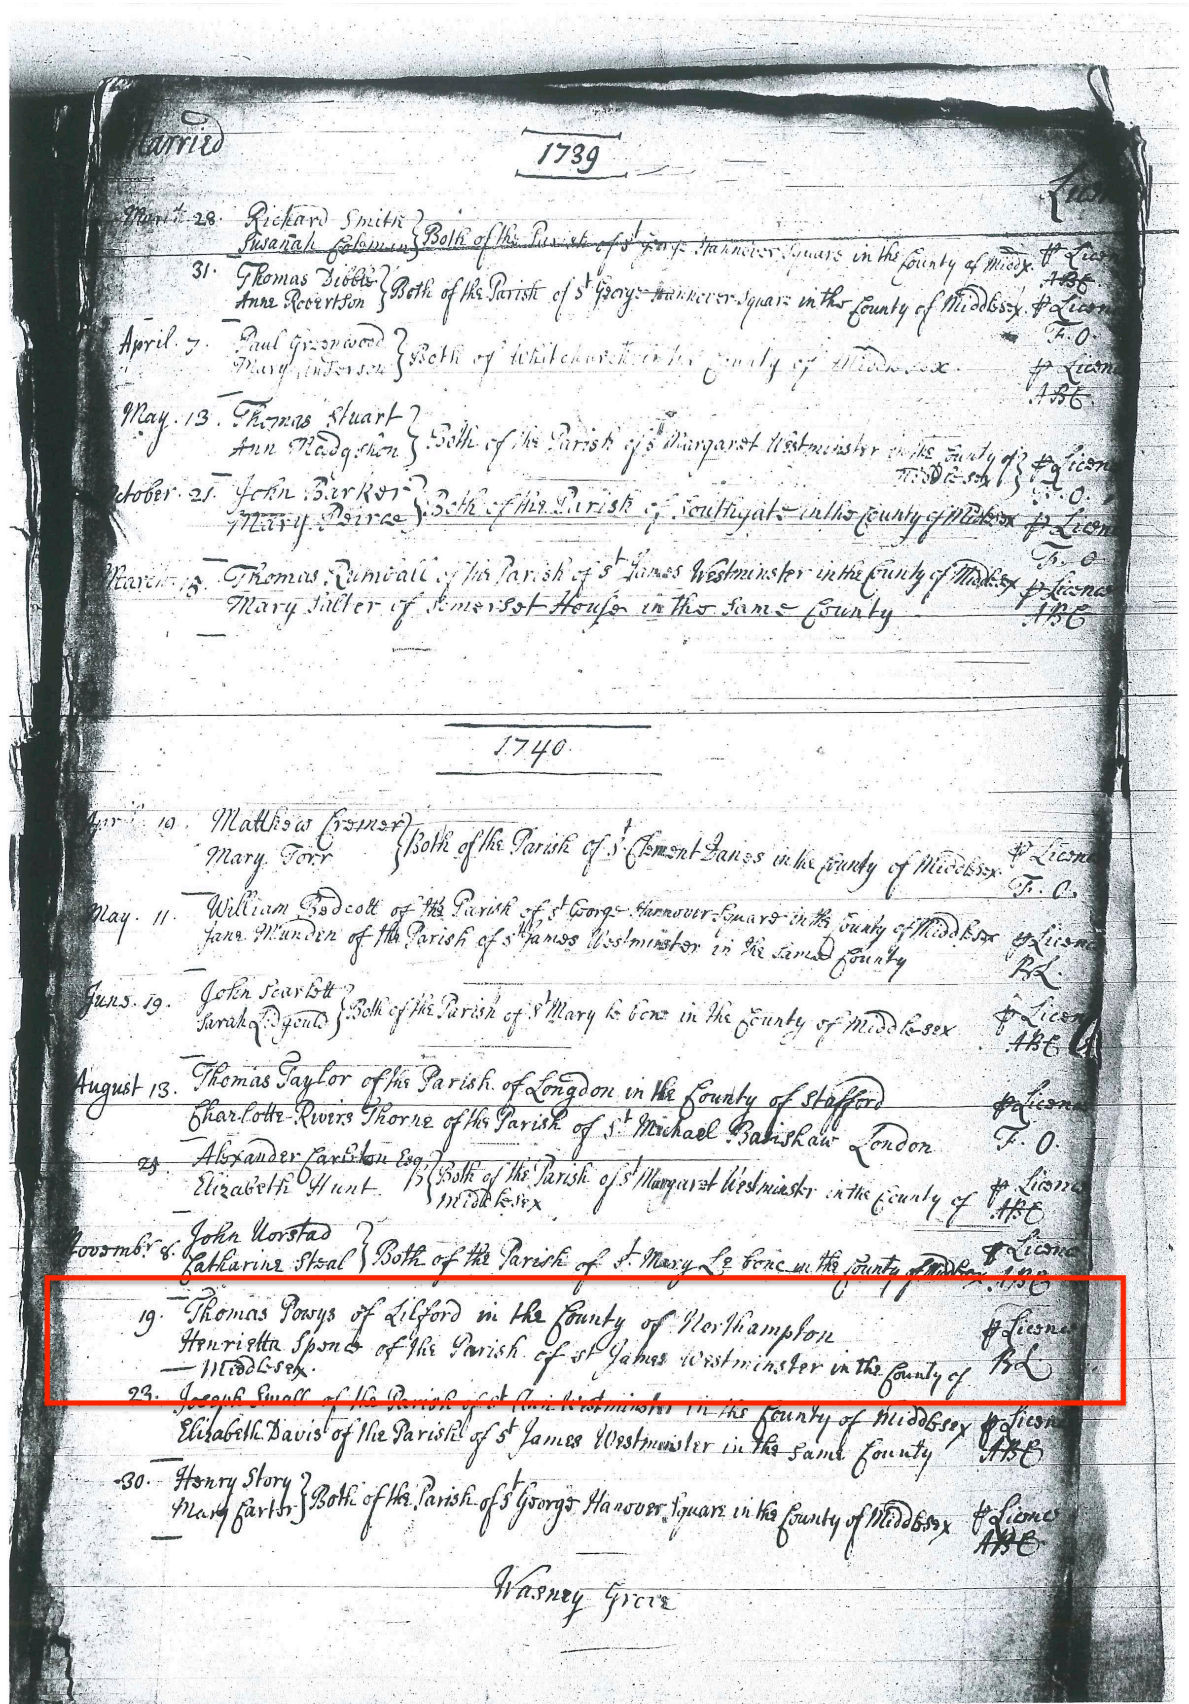 Married
1739
Licen
March 28. Richard Smith } Both of the Parish of St George Hannover Square in the County of Middx. p Licen
Susanah Coleman ABC
31. Thomas Dibble } Both of the Parish of St George Hannover Square in the County of Middlesex. p Licen
Anne Robertson F. O.
April. 7. Paul Greenwood } Both of Whitchurch in the County of Middlesex. p Licenc
Mary Anderson ABC
May. 13. Thomas Stuart } Both of the Parish of St Margaret Westminster in the County of } p Licen
Ann Middlesex F. O.
October. 21. John Barker } Both of the Parish of Southgate in the County of Middlesex p Licen
Mary Peirce F. O
March. 18. Thomas Rumball of the Parish of St James Westminster in the County of Middlesex p Licenc
Mary Salter of Somerset House in the same County ABC
1740.
April 19. Matthew Cremer } Both of the Parish of St Clement Danes in the County of Middlesex p Licenc
Mary Torr F. O.
May. 11. William Bedcott of the Parish of St George Hannover Square in the County of Middlesex p Licenc
Jane Munden of the Parish of St James Westminster in the same County BL.
June. 19. John Scarlett } Both of the Parish of St Mary le bone in the County of Middlesex p Licen
Sarah ABC
August 13. Thomas Taylor of the Parish of Longdon in the County of Stafford p Licenc
Charlotte Rivers Thorne of the Parish of St Michael Basishaw London F. O.
Alexander Carleton Esqr } Both of the Parish of St Margaret Westminster in the County of p Licenc
Elizabeth Hunt Middlesex ABC
Novembr 8. John Norstad } Both of the Parish of St Mary Le bone in the County of Middlesex p Licenc
Catharine Steal ABC
19. Thomas Powys of Lilford in the County of Northampton p Licenc
Henrietta Spence of the Parish of St James Westminster in the County of BL
Middlesex.
23. Joseph Small of the Parish of St Ann Westminster in the County of Middlesex p Licen
Elizabeth Davis of the Parish of St James Westminster in the same County ABC
30. Henry Story } Both of the Parish of St George Hanover Square in the County of Middlesex p Licenc
Mary Carter ABC